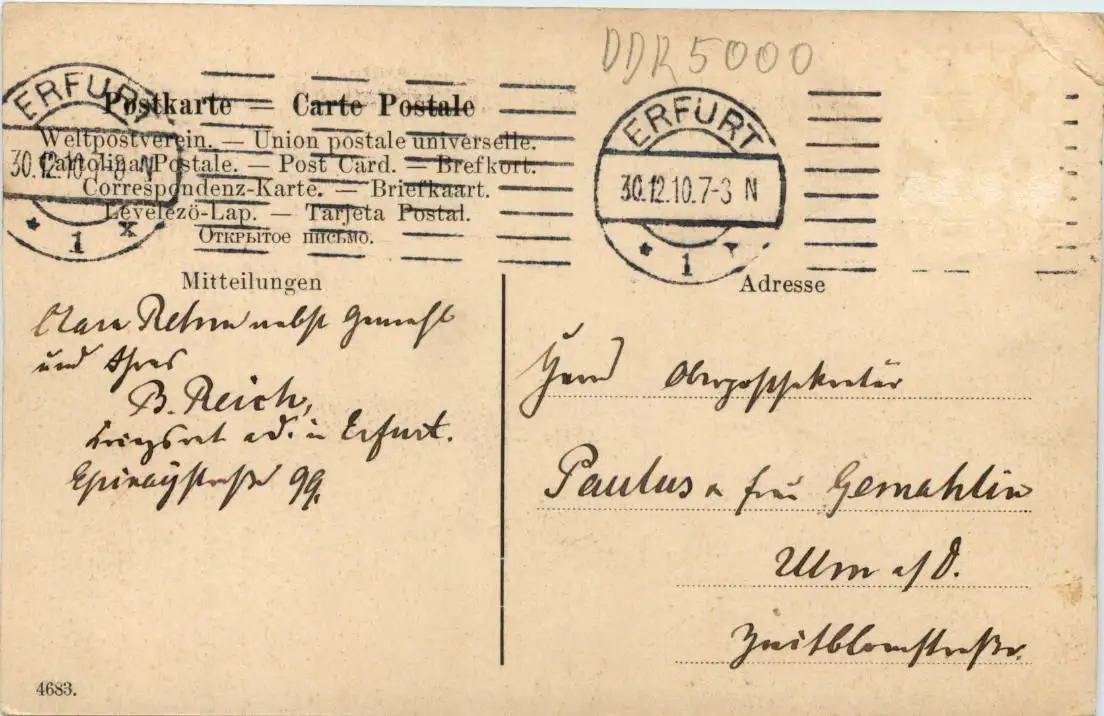 DDR 5000
ERFURT
30.12.10.7-8 N
* 1 x
ERFURT
30.12.10.7-8 N
* 1
Postkarte = Carte Postale
Weltpostverein. — Union postale universelle.
Cartolina Postale. — Post Card. — Brefkort.
Correspondenz-Karte. — Briefkaart.
Levelezö-Lap. — Tarjeta Postal.
Открытое письмо.
Mitteilungen
nebst Gemahl
und
B. Reich,
Kriegsrat a.d. in Erfurt.
99.
Adresse
Herrn Oberpostsekretär
Paulus u. Frau Gemahlin
Ulm a/D.
Zeitblomstraße.
4683.